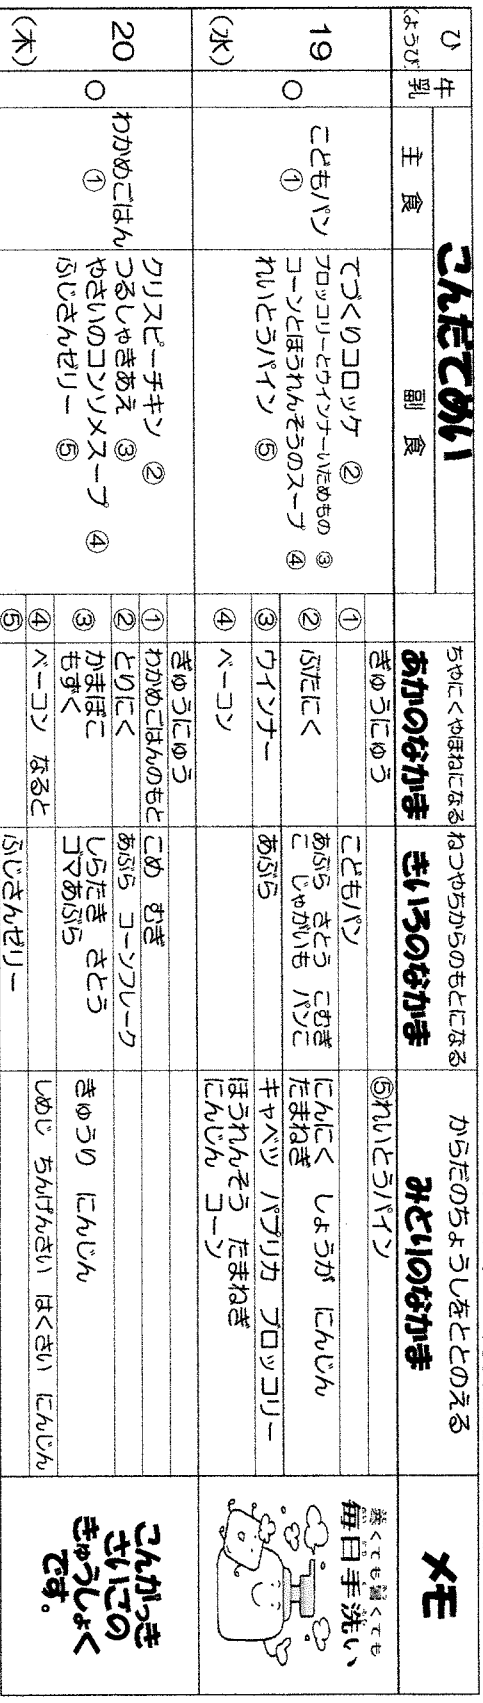 ひ
(ようび)
牛乳
こんだてめい
主食
副食
ちやにくやほねになる
あかのなかま
ねつやちからのもとになる
きいろのなかま
からだのちょうしをととのえる
みどりのなかま
メモ
19
(水)
○
こどもパン
①
てづくりコロッケ ②
ブロッコリーとウィンナーいためもの ③
コーンとほうれんそうのスープ ④
れいとうパイン ⑤
ぎゅうにゅう
⑤れいとうパイン
①
こどもパン
②
ぶたにく
あぶら さとう こむぎ
こ じゃがいも パンこ
にんにく しょうが にんじん
たまねぎ
③
ウィンナー
あぶら
キャベツ パプリカ ブロッコリー
④
ベーコン
ほうれんそう たまねぎ
にんじん コーン
寒くても暑くても
毎日手洗い
20
(木)
○
わかめごはん
①
クリスピーチキン ②
つるしゃきあえ ③
やさいのコンソメスープ ④
ふじさんゼリー ⑤
ぎゅうにゅう
①
わかめごはんのもと
こめ むぎ
②
とりにく
あぶら コーンフレーク
③
かまぼこ
もずく
しらたき さとう
ゴマあぶら
きゅうり にんじん
④
ベーコン なると
しめじ ちんげんさい はくさい にんじん
⑤
ふじさんゼリー
こんがっき
さいごの
きゅうしょく
です。